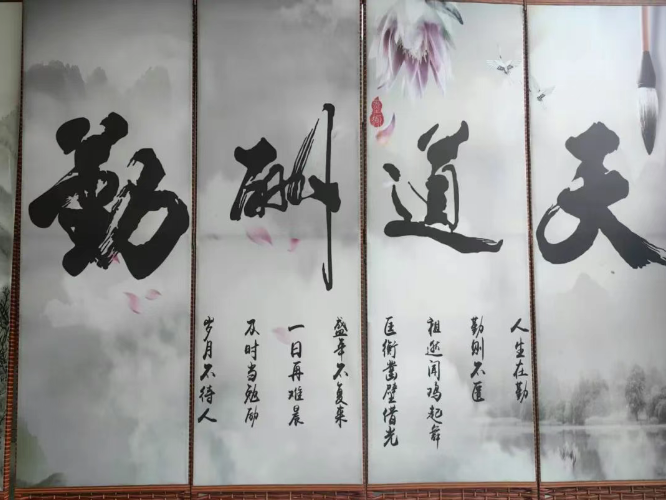 天道酬勤
人生在勤
勤则不匮
祖逖闻鸡起舞
匡衡凿壁借光
盛年不复来
一日再难晨
及时当勉励
岁月不待人